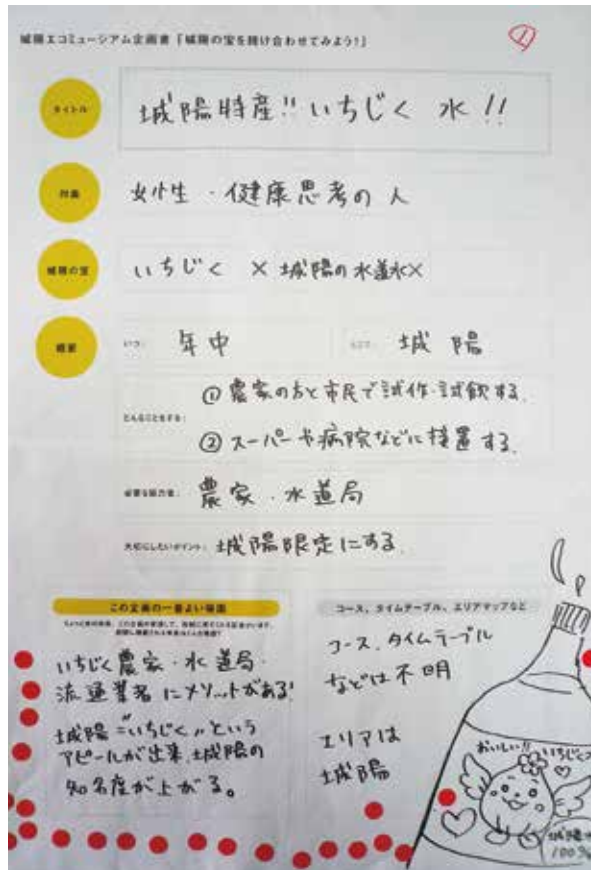 城陽エコミュージアム企画書「城陽の宝を掛け合わせてみよう!」
①
タイトル
城陽特産!!いちじく 水!!
対象
女性・健康思考の人
城陽の宝
いちじく × 城陽の水道水×
概要
いつ: 年中
どこで: 城陽
どんなことをする:
① 農家の方と市民で試作・試飲する.
② スーパーや病院などに設置する.
必要な協力者: 農家・水道局
大切にしたいポイント: 城陽限定にする.
この企画の一番よい場面
いちじく農家・水道局・
流通業者にメリットがある!
城陽="いちじく"という
アピールが出来、城陽の
知名度が上がる。
コース、タイムテーブル、エリアマップなど
コース、タイムテーブル
などは不明
エリアは
城陽
おいしい!!
いちじく
城陽
100%